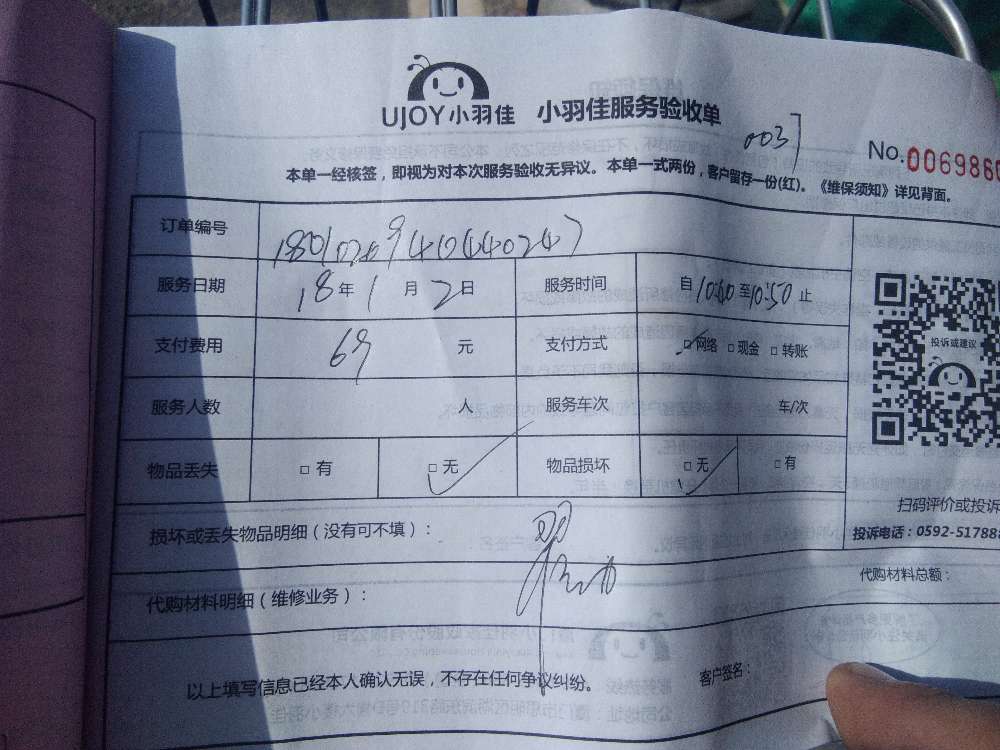 UJOY小羽佳 小羽佳服务验收单
0037
No.0069860
本单一经核签，即视为对本次服务验收无异议。本单一式两份，客户留存一份(红)。《维保须知》详见背面。
订单编号
服务日期 18年1月2日 服务时间 自10:00至10:50止
支付费用 69元 支付方式 ✓□网络 □现金 □转账
服务人数 人 服务车次 车/次
物品丢失 □有 □无✓ 物品损坏 □无✓ □有
投诉或建议
扫码评价或投诉
投诉电话：0592-51788
损坏或丢失物品明细（没有可不填）：
代购材料总额：
代购材料明细（维修业务）：
以上填写信息已经本人确认无误，不存在任何争议纠纷。 客户签名：